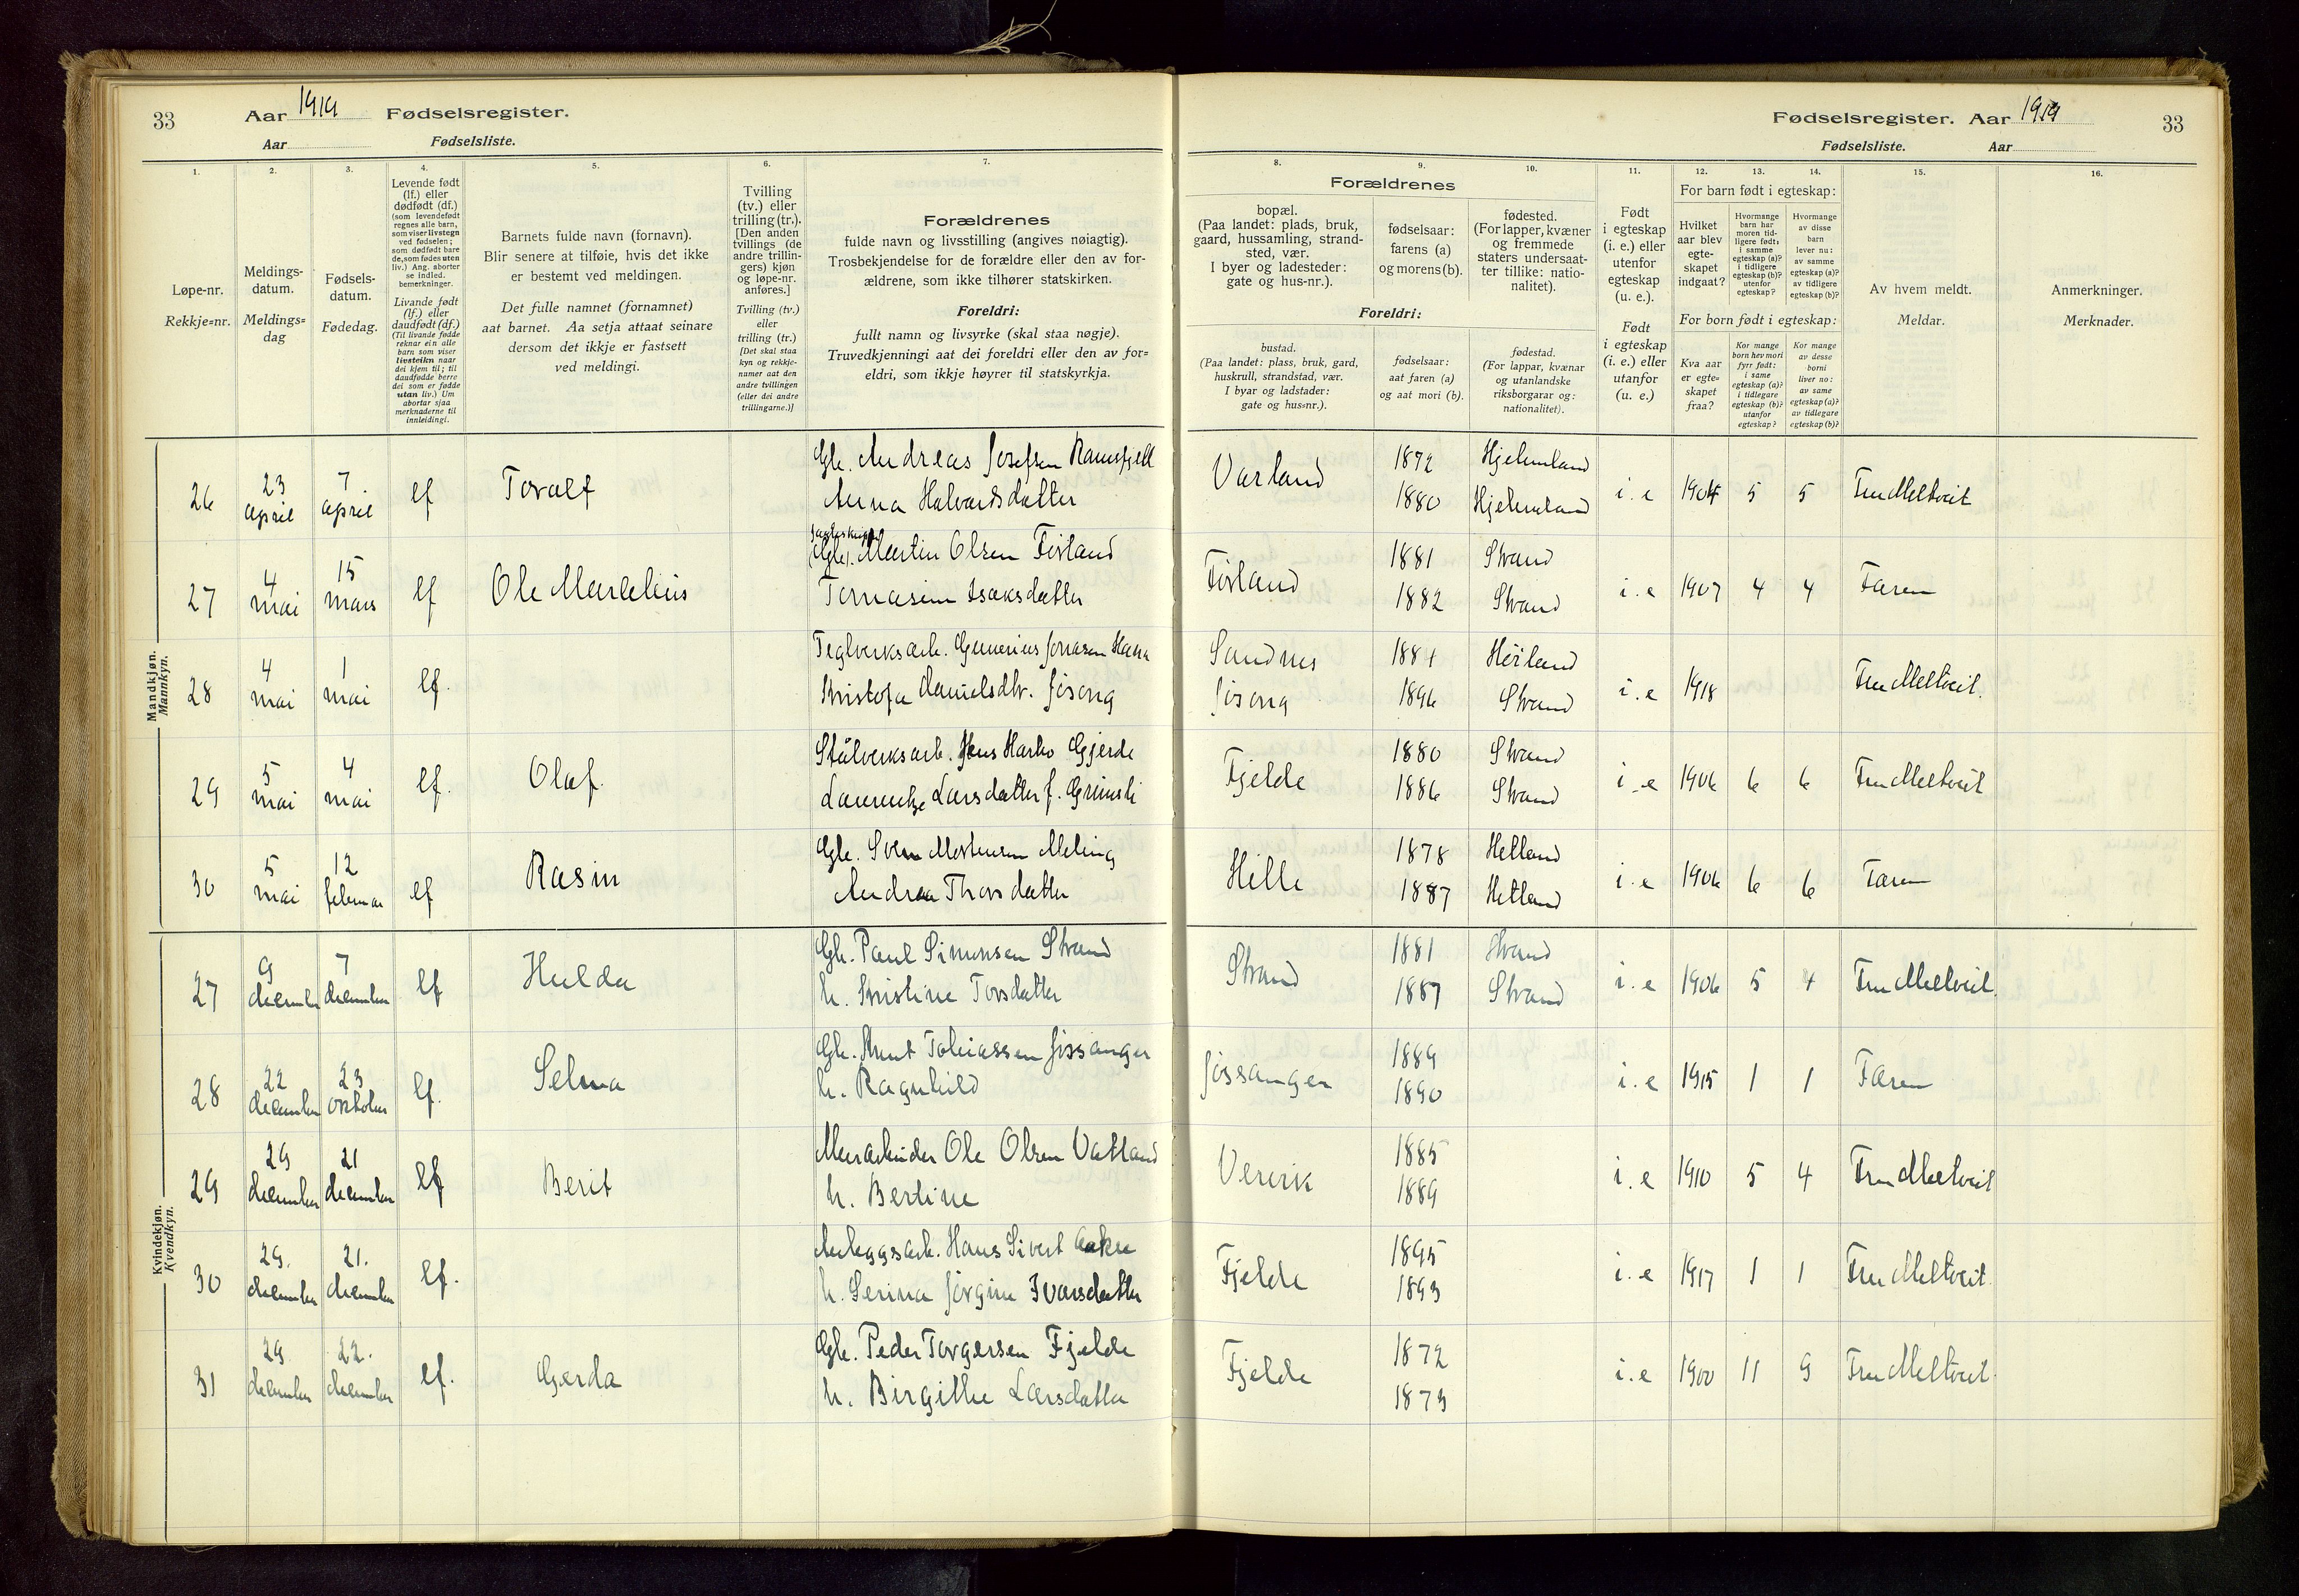 33 Aar 1919 Fødselsregister.
Aar Fødselsliste.
Fødselsregister. Aar 1919 33
Fødselsliste. Aar
1. 2. 3. 4. 5. 6. 7.
Løpe-nr.
Rekkje=nr.
Meldings-
datum.
Meldings=
dag
Fødsels-
datum.
Fødedag.
Levende født
(lf.) eller
dødfødt (df.)
(som levendefødt
regnes alle barn,
som viser livstegn
ved fødselen;
som dødfødt bare
de, som fødes uten
liv.) Ang. aborter
se indled.
bemerkninger.
Livande født
(lf.) eller
daudfødt (df.)
(Til livande fødde
reknar ein alle
barn som viser
livsteikn naar
dei kjem til; til
daudfødde berre
dei som er fødde
utan liv.) Um
abortar sjaa
merknaderne til
innleidingi.
Barnets fulde navn (fornavn).
Blir senere at tilføie, hvis det ikke
er bestemt ved meldingen.
Det fulle namnet (fornamnet)
aat barnet. Aa setja attaat seinare
dersom det ikkje er fastsett
ved meldingi.
Tvilling
(tv.) eller
trilling (tr.).
[Den anden
tvillings (de
andre trillin-
gers) kjøn
og løpe-nr.
anføres.]
Tvilling (tv.)
eller
trilling (tr.)
[Det skal staa
kyn og rekkje-
numer aat den
andre tvillingen
(eller dei andre
trillingarne.)]
Forældrenes
fulde navn og livsstilling (angives nøiagtig).
Trosbekjendelse for de forældre eller den av for-
ældrene, som ikke tilhører statskirken.
Foreldri:
fullt namn og livsyrke (skal staa nøgje).
Truvedkjenningi aat dei foreldri eller den av for=
eldri, som ikkje høyrer til statskyrkja.
8. 9. 10. 11. 12. 13. 14. 15. 16.
Forældrenes
bopæl.
(Paa landet: plads, bruk,
gaard, hussamling, strand-
sted, vær.
I byer og ladesteder:
gate og hus-nr.).
fødselsaar:
farens (a)
og morens (b).
fødested.
(For lapper, kvæner
og fremmede
staters undersaat-
ter tillike: natio-
nalitet).
Foreldri:
bustad.
(Paa landet: plass, bruk, gard,
huskrull, strandstad, vær.
I byar og ladstader:
gate og hus=nr.).
fødselsaar:
aat faren (a)
og aat mori (b).
fødestad.
(For lappar, kvænar
og utanlandske
riksborgarar og:
nationalitet).
Født
i egteskap
(i. e.) eller
utenfor
egteskap
(u. e.).
Født
i egteskap
(i. e.) eller
utanfor
(u. e.)
For barn født i egteskap:
Hvilket
aar blev
egte-
skapet
indgaat?
Hvormange
barn har
moren tid-
ligere født:
i samme
egteskap (a)?
i tidligere
egteskap (b)?
utenfor
egteskap?
Hvormange
av disse
barn
lever nu:
av samme
egteskap (a)?
av tidligere
egteskap (b)?
For born født i egteskap:
Kva aar
er egte=
skapet
fraa?
Kor mange
born hev mori
fyrr født:
i same
egteskap (a)?
i tidlegare
egteskap (b)?
utanfor
egteskap?
Kor mange
av desse
borni
liver no:
av same
egteskap (a)?
av tidlegare
egteskap (b)?
Av hvem meldt.
Meldar.
Anmerkninger.
Merknader.
Mandkjøn.
Mannkyn.
26 23 april 7 april lf Toralf Gb. Andreas Josefsen Ramsfjell Varland 1872 Hjelmeland i.e 1904 5 5 Fru Meltveit
Anna Halvardsdatter 1880 Hjelmeland
27 4 mai 15 mars lf Ole Marselius (Gb). Martin Olsen Førland Førland 1881 Strand i.e 1907 4 4 Faren
Tomasine Isaksdatter 1882 Strand
28 4 mai 1 mai lf. Teglverksarb. Gunerius Jonasen Hana Sandnes 1881 Høiland i.e 1918 Fru Meltveit.
Kristofa Danielsdtr. Jøsong Jøsong 1896 Strand
29 5 mai 4 mai lf. Olaf. Stålverksarb. Jens Marko Gjerde Fjelde 1880 Strand i.e 1906 6 6 Fru Meltveit
Laurentze Larsdatter f. 1886 Strand
30 5 mai 12 februar lf Rasin Gb. Sven Mortensen Meling Hille 1878 Hetland i.e 1906 6 6 Faren
Andrea Thorsdatter 1887 Hetland
Kvindekjøn.
Kvendkyn.
27 9 december 7 december lf Hulda Gb. Paul Simonsen Strand Strand 1881 Strand i.e 1906 5 4 Fru Meltveit.
h. Kristine Torsdatter 1887 Strand
28 22 december 23 oktober lf. Selma Gb. Knut Tobiassen Jøssanger Jøssanger 1889 i.e 1915 1 1 Faren
h. Ragnhild 1890
29 29 december 21 december lf Berit Murarbeider Ole Olsen Vatland Vervik 1885 i.e 1910 5 4 Fru Meltveit
h. Bertine 1889
30 29. december 21. december lf. Anleggsarb. Hans Sivert Aakre Fjelde 1895 i.e 1917 1 1 Fru Meltveit.
h. Serina Jørgine Ivarsdatter 1893
31 29 december 22. december lf. Gerda Gb. Peder Torgersen Fjelde Fjelde 1872 i.e 1900 11 9 Fru Meltveit.
h. Birgithe Larsdatter 1873